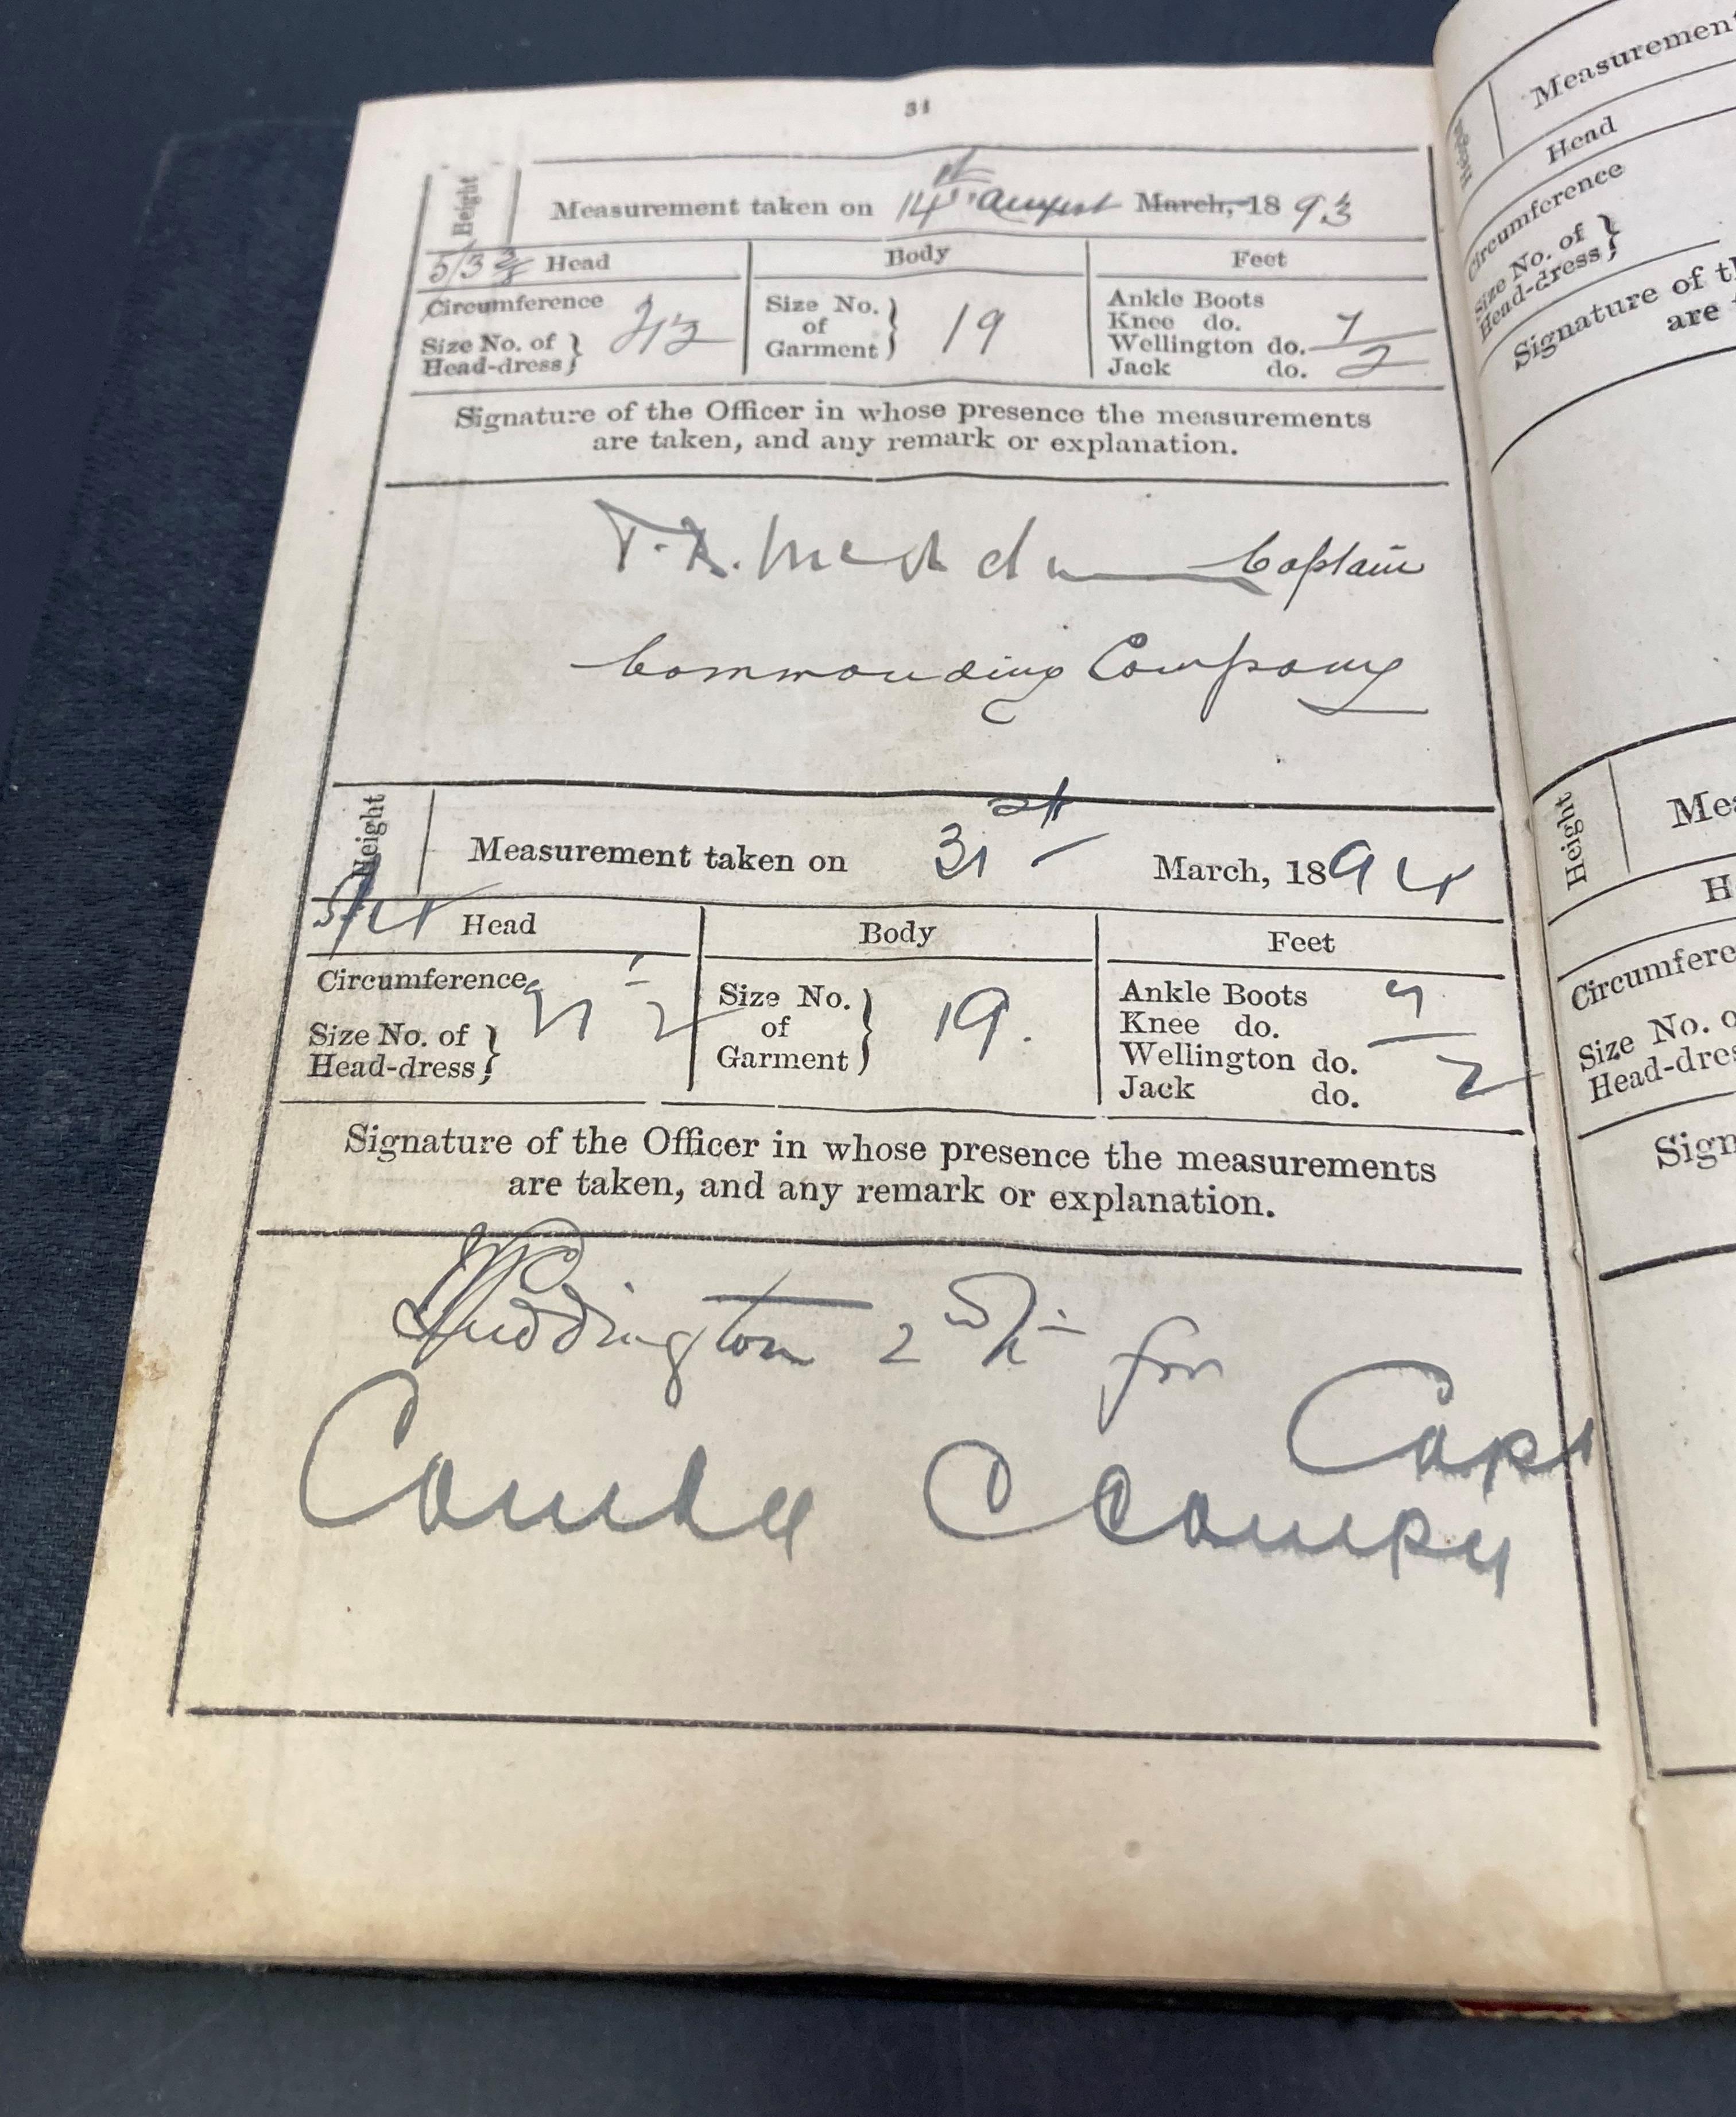 34
Height
Measurement taken on 14th August March, 1893
5/3 Head Body Feet
Circumference
Size No. of Head-dress} 21½
Size No. of Garment} 19
Ankle Boots
Knee do. 7
Wellington do.
Jack do. 2
Signature of the Officer in whose presence the measurements
are taken, and any remark or explanation.
Captain
Commanding Company
Height
Measurement taken on 31st March, 1894
5/4 Head Body Feet
Circumference 21½
Size No. of Head-dress}
Size No. of Garment} 19.
Ankle Boots 7
Knee do.
Wellington do. 2
Jack do.
Signature of the Officer in whose presence the measurements
are taken, and any remark or explanation.
Huddington 2 Lt for
Capt
C Compy
Measurement
Height
Head
Circumference
Size No. of
Head-dress}
Signature of
are
Height
Circumfere
Size No.
Head-dres
Sign